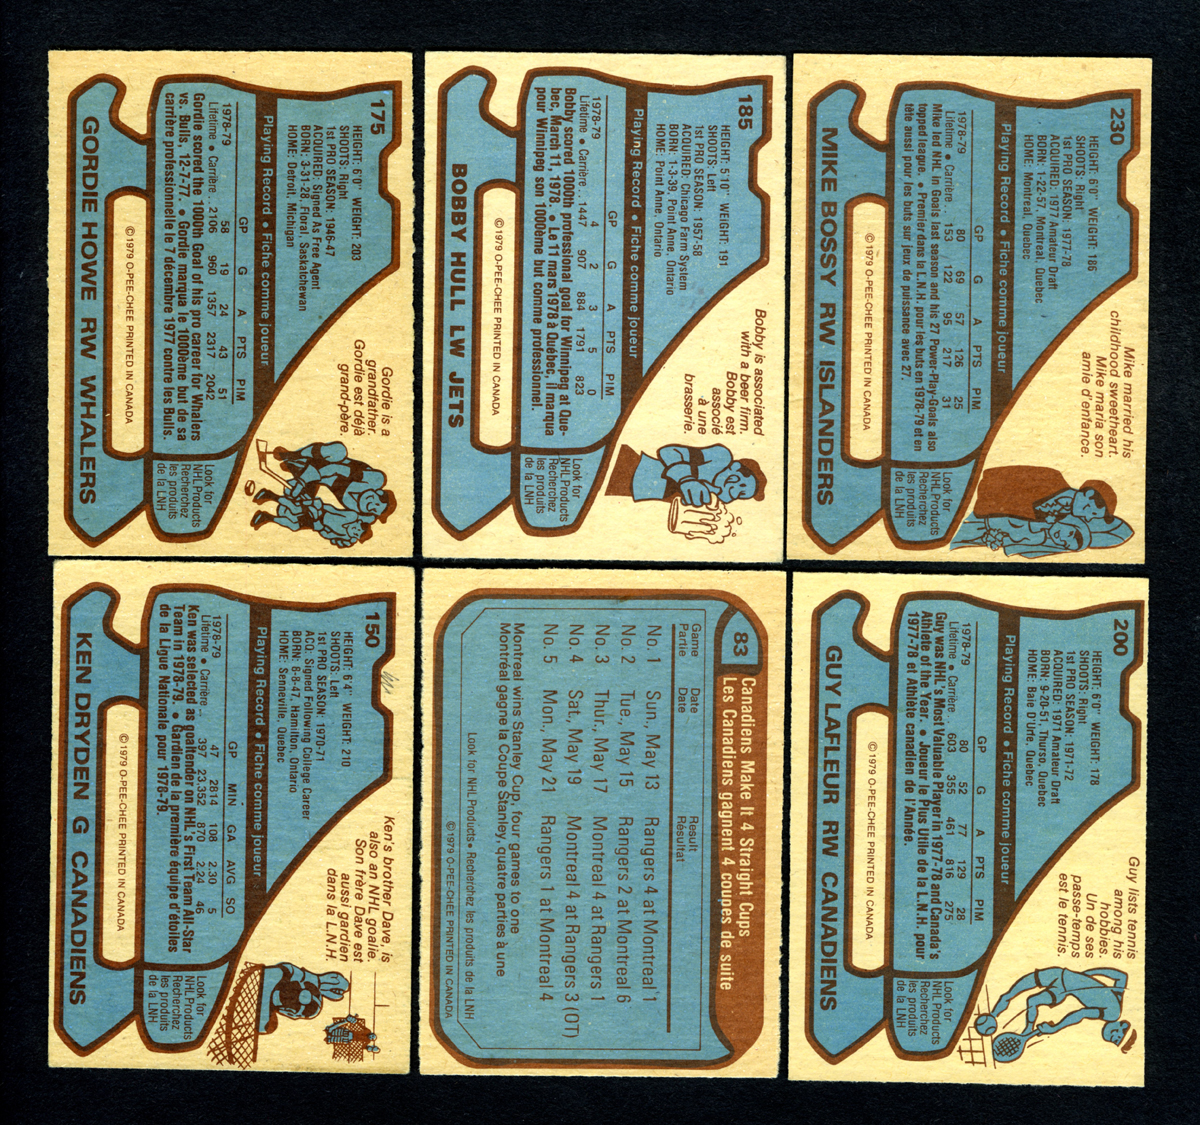 175
HEIGHT: 6'0" WEIGHT: 203
SHOOTS: Right
1st PRO SEASON: 1946-47
ACQUIRED: Signed As Free Agent
BORN: 3-31-28, Floral, Saskatchewan
HOME: Detroit, Michigan
Playing Record • Fiche comme joueur
GP G A PTS PIM
1978-79 58 19 24 43 51
Lifetime • Carrière 2106 960 1357 2317 2042
Gordie scored the 1000th Goal of his pro career for Whalers
vs. Bulls, 12-7-77. • Gordie marqua le 1000ème but de sa
carrière professionnelle le 7 décembre 1977 contre les Bulls.
Gordie is a
grandfather.
Gordie est déjà
grand-père.
Look for
NHL Products
Recherchez
les produits
de la LNH
©1979 O-PEE-CHEE PRINTED IN CANADA
GORDIE HOWE RW WHALERS
185
HEIGHT: 5'10" WEIGHT: 191
SHOOTS: Left
1st PRO SEASON: 1957-58
ACQUIRED: Chicago Farm System
BORN: 1-3-39, Point Anne, Ontario
HOME: Point Anne, Ontario
Playing Record • Fiche comme joueur
GP G A PTS PIM
1978-79 4 2 3 5 0
Lifetime • Carrière .. 1447 907 884 1791 823
Bobby scored 1000th professional goal for Winnipeg at Que-
bec, March 11, 1978. • Le 11 mars 1978 à Québec, il marqua
pour Winnipeg son 1000ème but comme professionnel.
Bobby is associated
with a beer firm.
Bobby est
associé
à une
brasserie.
Look for
NHL Products
Recherchez
les produits
de la LNH
©1979 O-PEE-CHEE PRINTED IN CANADA
BOBBY HULL LW JETS
230
HEIGHT: 6'0" WEIGHT: 186
SHOOTS: Right
1st PRO SEASON: 1977-78
ACQUIRED: 1977 Amateur Draft
BORN: 1-22-57, Montreal, Quebec
HOME: Montreal, Quebec
Playing Record • Fiche comme joueur
GP G A PTS PIM
1978-79 80 69 57 126 25
Lifetime • Carrière .. 153 122 95 217 31
Mike led NHL in Goals last season and his 27 Power-Play-Goals also
topped league. • Premier dans la L.N.H. pour les buts en 1978-79 et en
tête aussi pour les buts sur jeu de puissance avec 27.
Mike married his
childhood sweetheart.
Mike maria son
amie d'enfance.
Look for
NHL Products
Recherchez
les produits
de la LNH
©1979 O-PEE-CHEE PRINTED IN CANADA
MIKE BOSSY RW ISLANDERS
150
HEIGHT: 6'4" WEIGHT: 210
SHOOTS: Left
1st PRO SEASON: 1970-71
ACQ.: Signed Following College Career
BORN: 8-8-47, Hamilton, Ontario
HOME: Senneville, Quebec
Playing Record • Fiche comme joueur
GP MIN GA AVG SO
1978-79 47 2814 108 2.30 5
Lifetime • Carrière ... 397 23,352 870 2.24 46
Ken was selected as goaltender on NHL's First Team All-Star
Team in 1978-79. • Gardien de la première équipe d'étoiles
de la Ligue Nationale pour 1978-79.
Ken's brother Dave, is
also an NHL goalie.
Son frère Dave est
aussi gardien
dans la L.N.H.
Look for
NHL Products
Recherchez
les produits
de la LNH
©1979 O-PEE-CHEE PRINTED IN CANADA
KEN DRYDEN G CANADIENS
83
Canadiens Make It 4 Straight Cups
Les Canadiens gagnent 4 coupes de suite
Game Date Result
Partie Date Résultat
No. 1 Sun., May 13 Rangers 4 at Montreal 1
No. 2 Tue., May 15 Rangers 2 at Montreal 6
No. 3 Thur., May 17 Montreal 4 at Rangers 1
No. 4 Sat., May 19 Montreal 4 at Rangers 3 (OT)
No. 5 Mon., May 21 Rangers 1 at Montreal 4
Montreal wins Stanley Cup, four games to one
Montréal gagne la Coupe Stanley, quatre parties à une
Look for NHL Products • Recherchez les produits de la LNH
©1979 O-PEE-CHEE PRINTED IN CANADA
200
HEIGHT: 6'0" WEIGHT: 178
SHOOTS: Right
1st PRO SEASON: 1971-72
ACQUIRED: 1971 Amateur Draft
BORN: 9-20-51, Thurso, Quebec
HOME: Baie D'Urfe, Quebec
Playing Record • Fiche comme joueur
GP G A PTS PIM
1978-79 80 52 77 129 28
Lifetime • Carrière 603 355 461 816 275
Guy was NHL's Most Valuable Player in 1977-78 and Canada's
Athlete of the Year. • Joueur le Plus Utile de la L.N.H. pour
1977-78 et Athlète canadien de l'Année.
Guy lists tennis
among his
hobbies.
Un de ses
passe-temps
est le tennis.
Look for
NHL Products
Recherchez
les produits
de la LNH
©1979 O-PEE-CHEE PRINTED IN CANADA
GUY LAFLEUR RW CANADIENS